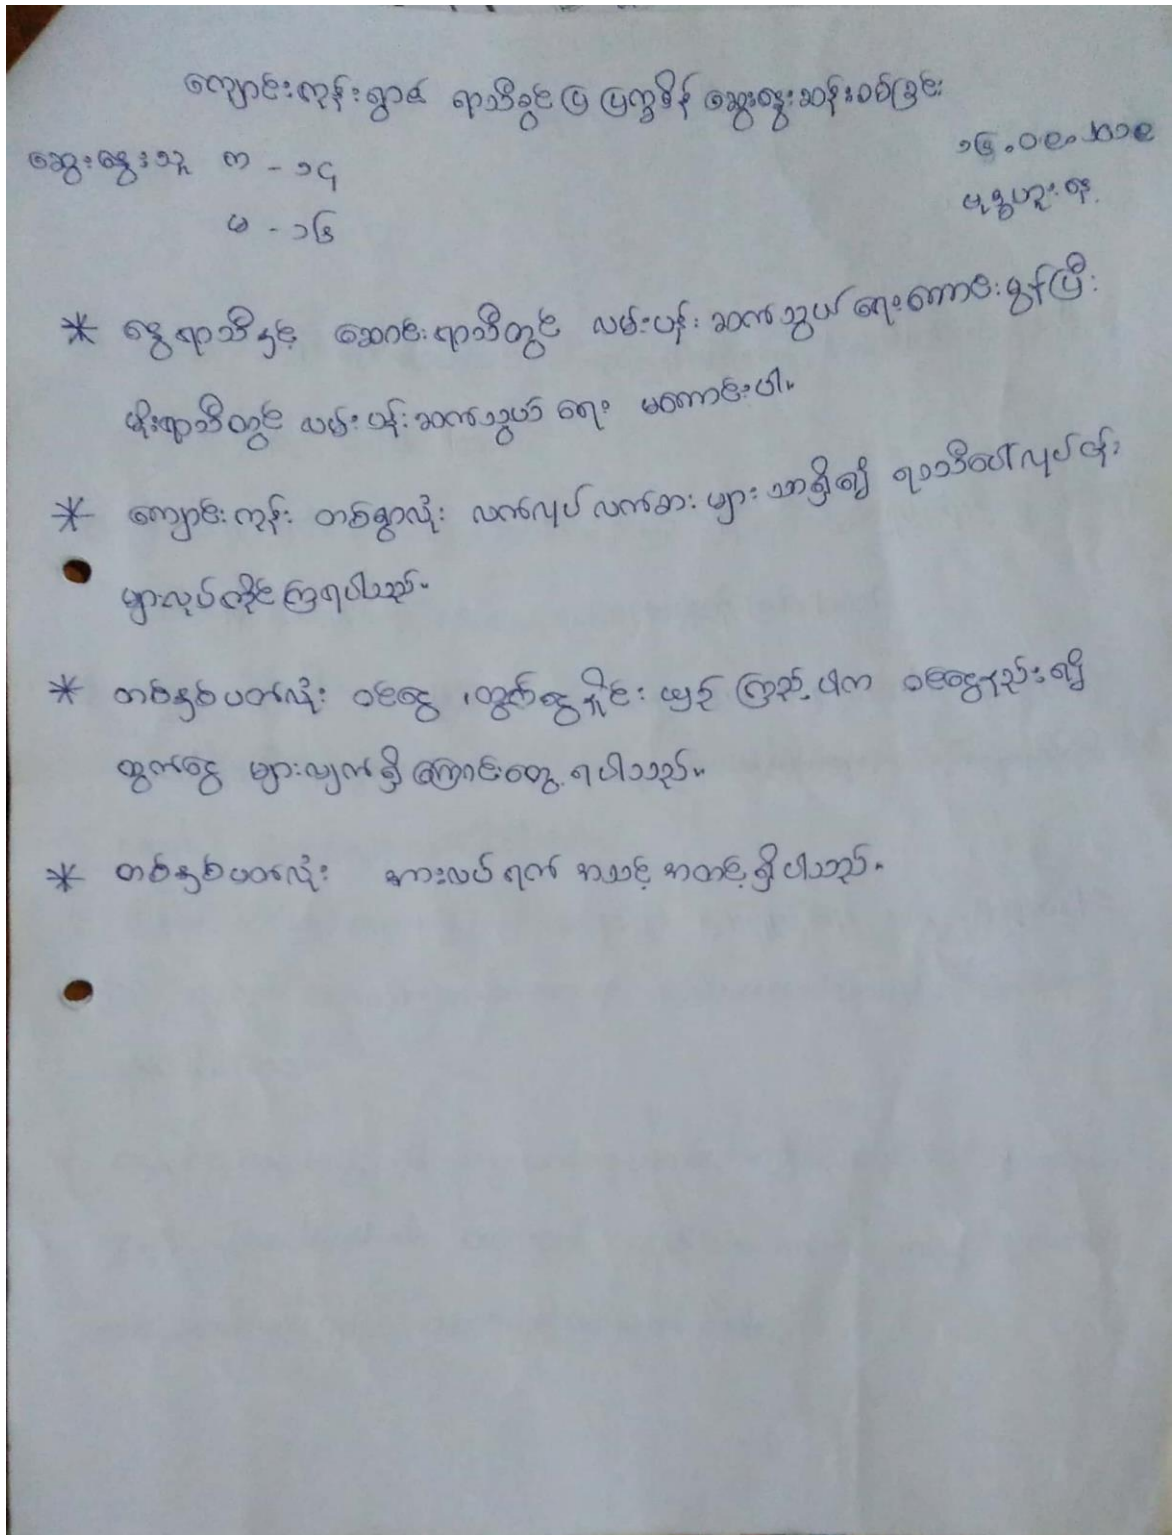 ကျောင်းကုန်းရွာ၏ ရာသီခွင်ပြ ပြက္ခဒိန် ဆွေးနွေးဆန်းစစ်ခြင်း
၁၆.၀၉.၂၀၁၉
ဆွေးနွေးသူ က - ၁၄
ဗုဒ္ဓဟူးနေ့
မ - ၁၆
* နွေရာသီနှင့် ဆောင်းရာသီတွင် လမ်းပန်းဆက်သွယ်ရေးကောင်းမွန်ပြီး
မိုးရာသီတွင် လမ်းပန်းဆက်သွယ်ရေး မကောင်းပါ။
* ကျောင်းကုန်း တစ်ရွာလုံး လက်လုပ်လက်စားများသာရှိ၍ ရာသီပေါ်လုပ်ငန်း
များလုပ်ကိုင်ကြရပါသည်။
* တစ်နှစ်ပတ်လုံး ဝင်ငွေ ၊ထွက်ငွေနှိုင်းယှဉ်ကြည့်ပါက ဝင်ငွေနည်း၍
ထွက်ငွေ များလျက်ရှိကြောင်းတွေ့ရပါသည်။
* တစ်နှစ်ပတ်လုံး အားလပ်ရက် အသင့်အတင့်ရှိပါသည်။